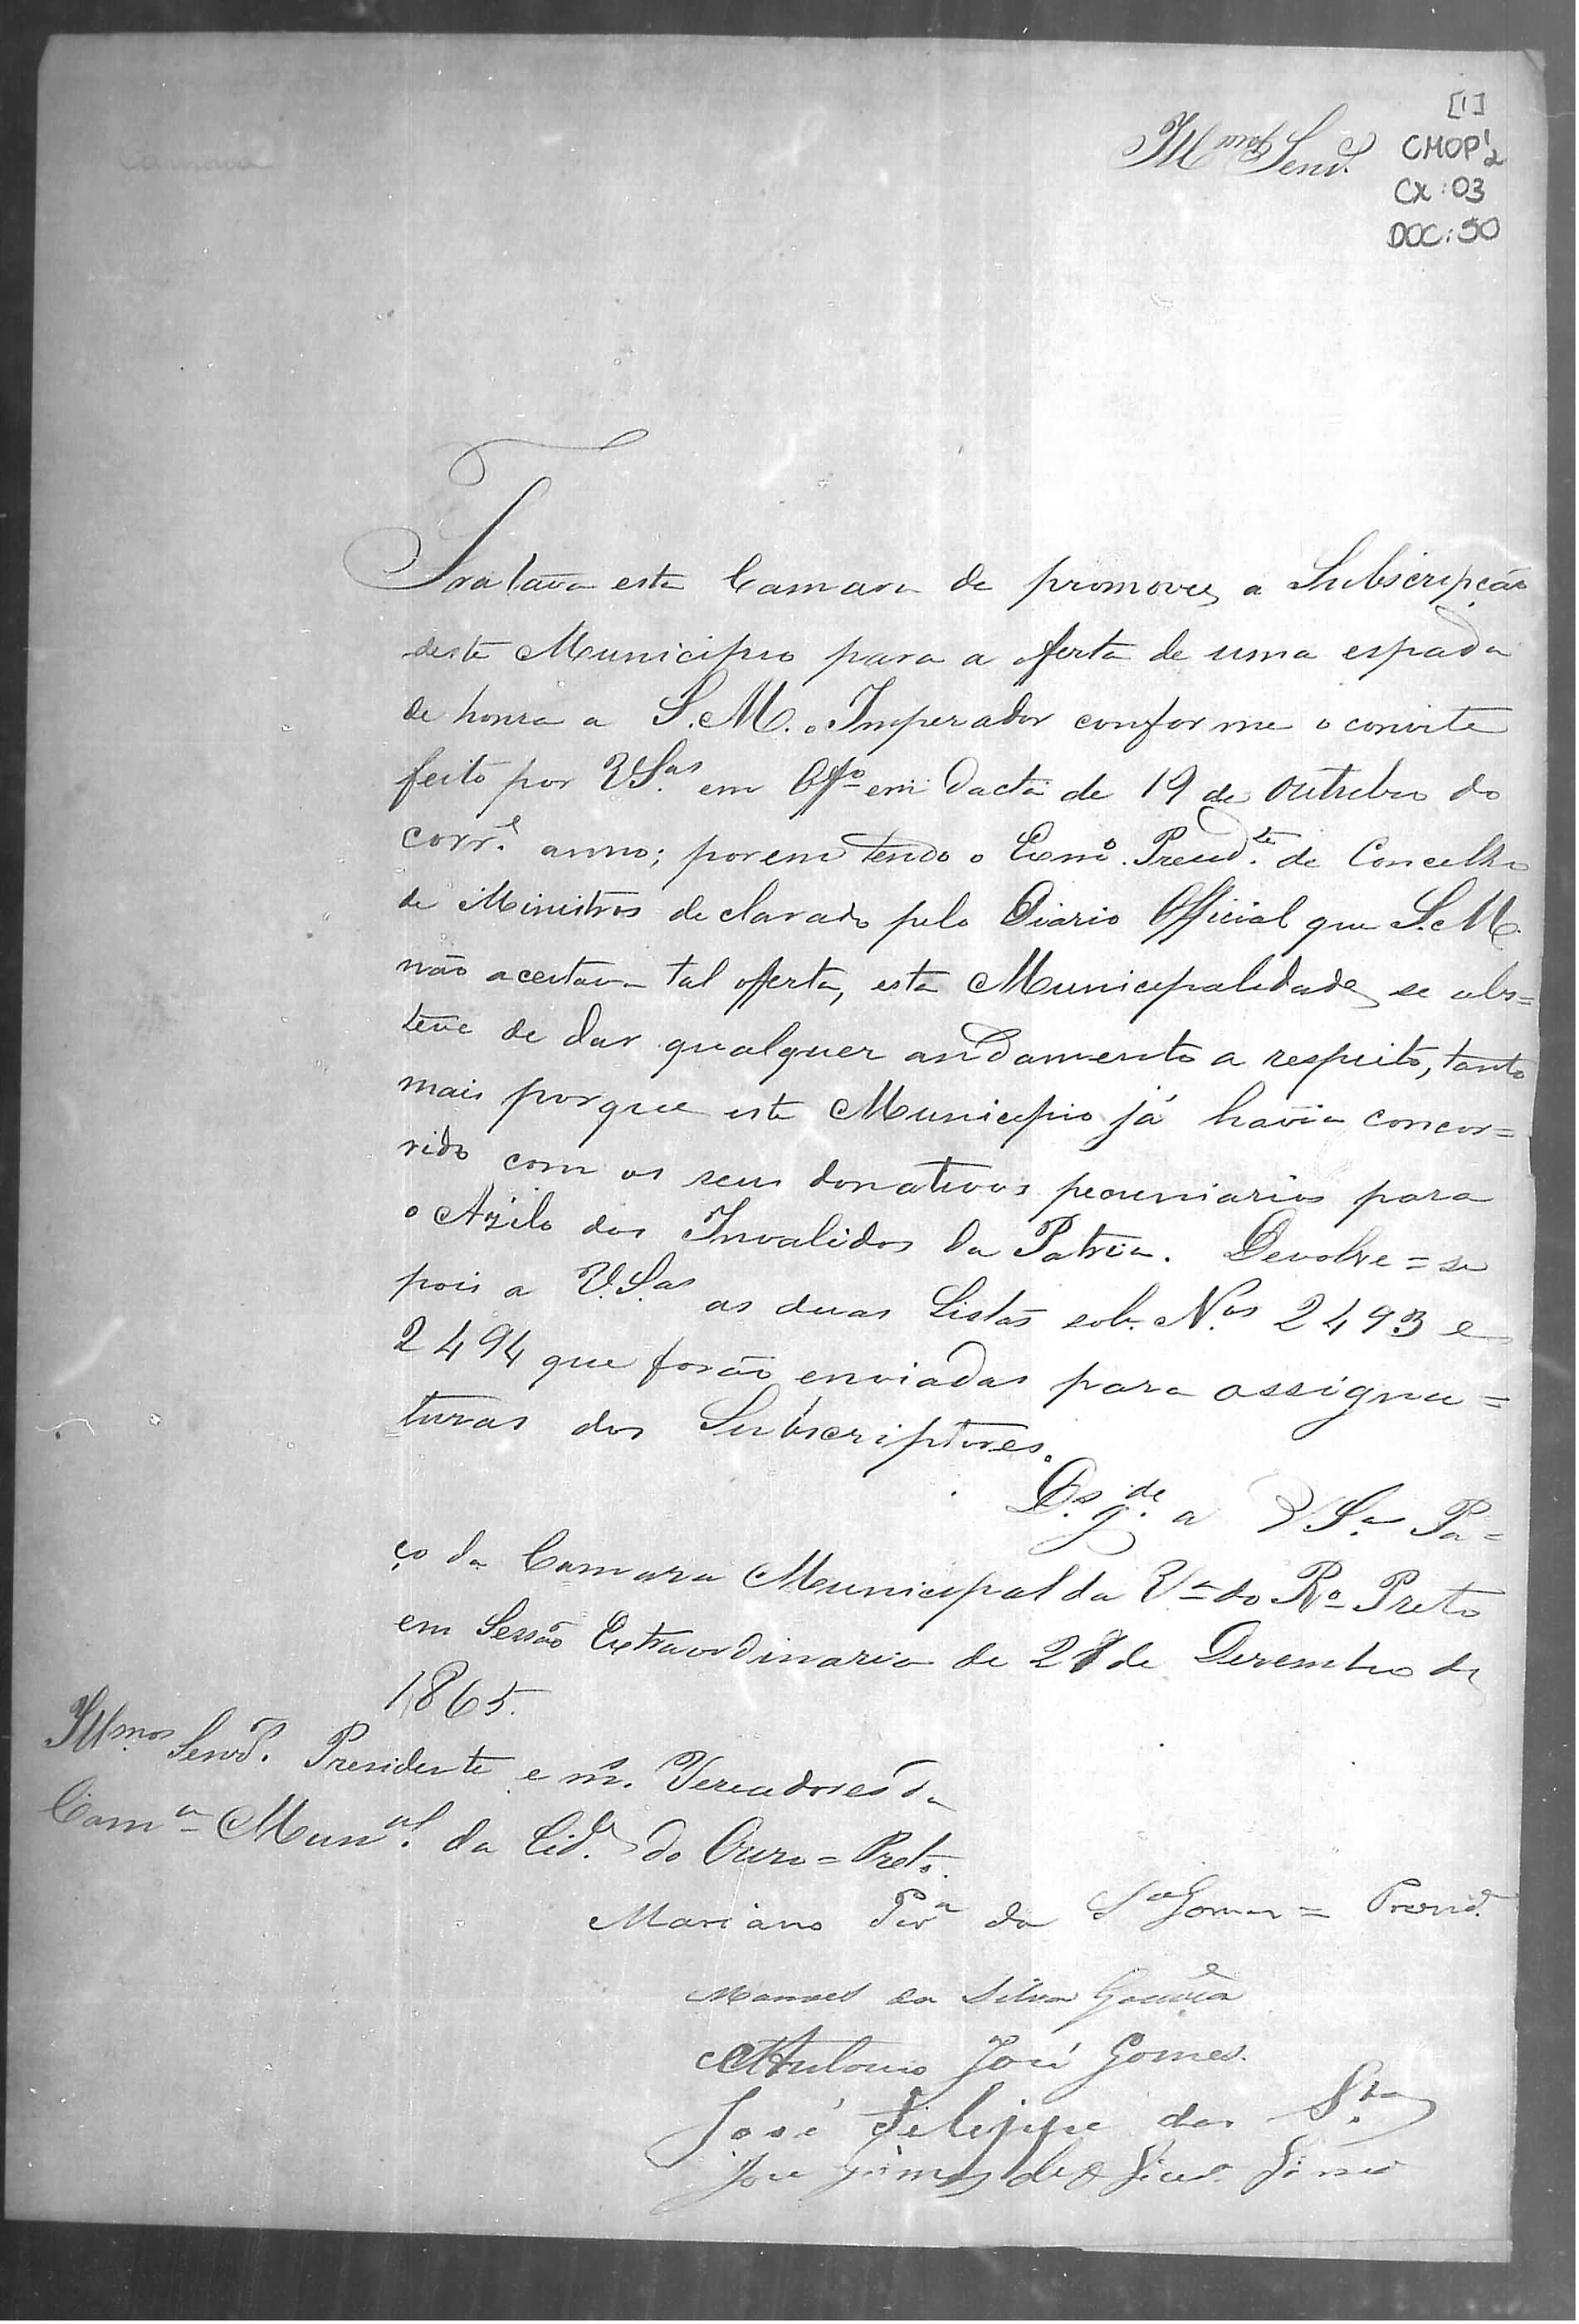 [1]
CMOP 1/2
CX: 03
DOC: 50
Camara
Ill.mos Senr.s
Tratava esta Camara de promover a Subscripção
deste Municipio para a oferta de uma espada
de honra a S. M. o Imperador conforme o convite
feito por V.S.as em Off.o em dacta de 19 de Outubro do
corr.e anno; porem tendo o Exmo. Presid.te de Concelho
de Ministros declarado pelo Diario Official que S. M.
não aceitava tal offerta, esta Municipalidade se abs=
teve de dar qualquer andamento a respeito, tanto
mais porque este Municipio já havia concor=
rido com os seus donativos pecuniarios para
o Azilo dos Invalidos da Patria. Devolve=se
pois a V.S.as as duas Listas sob N.os 2493 e
2494 que forão enviadas para assigna=
turas dos Subscriptores.
D.s g.de a V S.as Pa=
ço da Camara Municipal da V.a do R.o Preto
em Sessão Extraordinaria de 28 de Dezembro de
1865.
Ill.mos Senr.s Presidente e m.s Vereadores da
Cam.a Mun.al da Cid.e do Ouro=Preto.
Mariano Per.a da S.a Gomes = Presid.e
Manoel da Silva Gouvêa
Antonio José Gomes.
José Felippe dos S.tos
José Gomes de